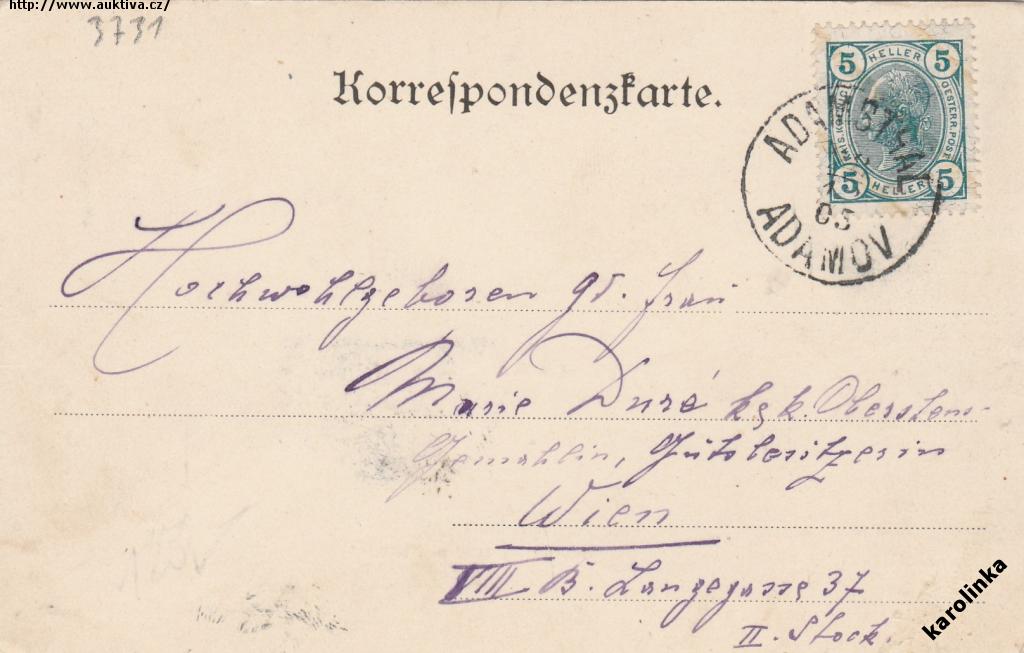 http://www.auktiva.cz/
3731
Korrespondenzkarte.
5 HELLER 5
KAIS. KÖNIGL. OESTERR. POST
5 HELLER 5
ADAMSTHAL
03
ADAMOV
Hochwohlgeboren gd. Frau
Marie Duré k. k. Oberstens-
Gemahlin, Gutsbesitzerin
Wien
VIII B. Langegasse 37
II. Stock.
karolinka